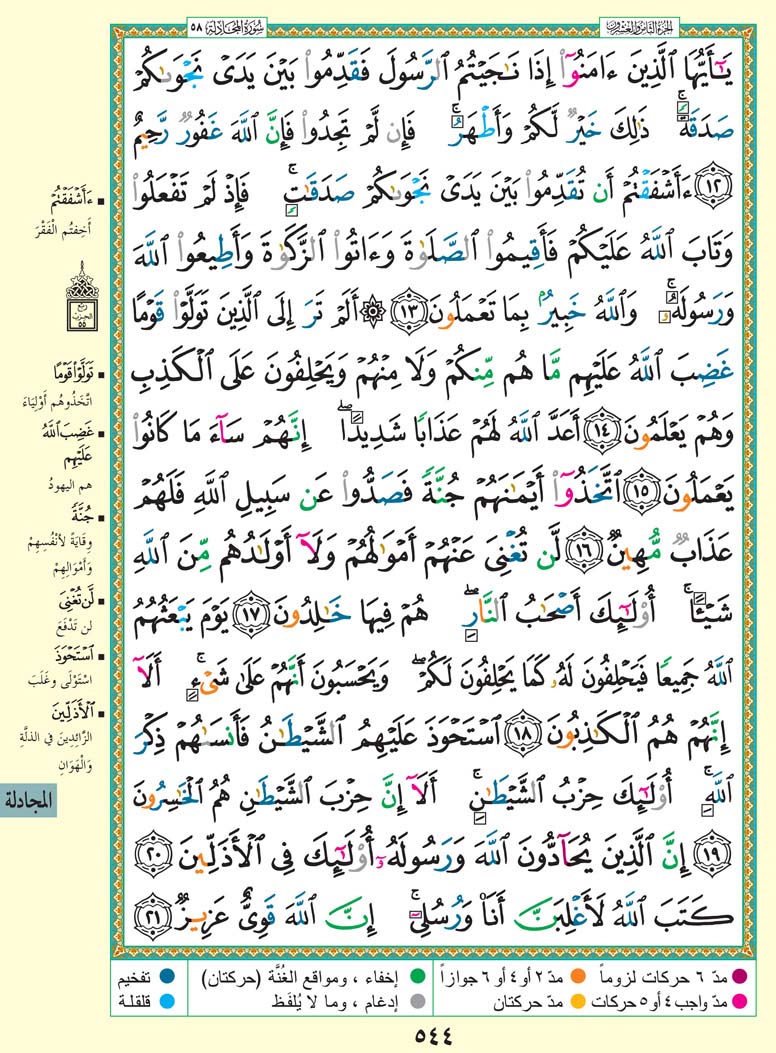 الجزء الثامن والعشرون
سُورَةُ المُجَادلة ٥٨
يَٰٓأَيُّهَا ٱلَّذِينَ ءَامَنُوٓا۟ إِذَا نَٰجَيْتُمُ ٱلرَّسُولَ فَقَدِّمُوا۟ بَيْنَ يَدَىْ نَجْوَىٰكُمْ
صَدَقَةً ۚ ذَٰلِكَ خَيْرٌ لَّكُمْ وَأَطْهَرُ ۚ فَإِن لَّمْ تَجِدُوا۟ فَإِنَّ ٱللَّهَ غَفُورٌ رَّحِيمٌ
١٢ ءَأَشْفَقْتُمْ أَن تُقَدِّمُوا۟ بَيْنَ يَدَىْ نَجْوَىٰكُمْ صَدَقَٰتٍ ۚ فَإِذْ لَمْ تَفْعَلُوا۟
وَتَابَ ٱللَّهُ عَلَيْكُمْ فَأَقِيمُوا۟ ٱلصَّلَوٰةَ وَءَاتُوا۟ ٱلزَّكَوٰةَ وَأَطِيعُوا۟ ٱللَّهَ
وَرَسُولَهُۥ ۚ وَٱللَّهُ خَبِيرٌۢ بِمَا تَعْمَلُونَ ١٣ ۞ أَلَمْ تَرَ إِلَى ٱلَّذِينَ تَوَلَّوْا۟ قَوْمًا
غَضِبَ ٱللَّهُ عَلَيْهِم مَّا هُم مِّنكُمْ وَلَا مِنْهُمْ وَيَحْلِفُونَ عَلَى ٱلْكَذِبِ
وَهُمْ يَعْلَمُونَ ١٤ أَعَدَّ ٱللَّهُ لَهُمْ عَذَابًا شَدِيدًا ۖ إِنَّهُمْ سَآءَ مَا كَانُوا۟
يَعْمَلُونَ ١٥ ٱتَّخَذُوٓا۟ أَيْمَٰنَهُمْ جُنَّةً فَصَدُّوا۟ عَن سَبِيلِ ٱللَّهِ فَلَهُمْ
عَذَابٌ مُّهِينٌ ١٦ لَّن تُغْنِىَ عَنْهُمْ أَمْوَٰلُهُمْ وَلَآ أَوْلَٰدُهُم مِّنَ ٱللَّهِ
شَيْـًٔا ۚ أُو۟لَٰٓئِكَ أَصْحَٰبُ ٱلنَّارِ ۖ هُمْ فِيهَا خَٰلِدُونَ ١٧ يَوْمَ يَبْعَثُهُمُ
ٱللَّهُ جَمِيعًا فَيَحْلِفُونَ لَهُۥ كَمَا يَحْلِفُونَ لَكُمْ ۖ وَيَحْسَبُونَ أَنَّهُمْ عَلَىٰ شَىْءٍ ۚ أَلَآ
إِنَّهُمْ هُمُ ٱلْكَٰذِبُونَ ١٨ ٱسْتَحْوَذَ عَلَيْهِمُ ٱلشَّيْطَٰنُ فَأَنسَىٰهُمْ ذِكْرَ
ٱللَّهِ ۚ أُو۟لَٰٓئِكَ حِزْبُ ٱلشَّيْطَٰنِ ۚ أَلَآ إِنَّ حِزْبَ ٱلشَّيْطَٰنِ هُمُ ٱلْخَٰسِرُونَ
١٩ إِنَّ ٱلَّذِينَ يُحَآدُّونَ ٱللَّهَ وَرَسُولَهُۥٓ أُو۟لَٰٓئِكَ فِى ٱلْأَذَلِّينَ ٢٠
كَتَبَ ٱللَّهُ لَأَغْلِبَنَّ أَنَا۠ وَرُسُلِىٓ ۚ إِنَّ ٱللَّهَ قَوِىٌّ عَزِيزٌ ٢١
ءَأَشْفَقْتُمْ
أَخِفتُم الْفَقْرَ
ربع
الحزب
٥٥
تَوَلَّوْا۟ قَوْمًا
اتّخَذُوهُم أَوْلِيَاءَ
غَضِبَ ٱللَّهُ
عَلَيْهِم
هم اليهودُ
جُنَّةً
وِقَايَةً لأَنْفُسِهِمْ
وَأَمْوَالِهِمْ
لَّن تُغْنِىَ
لن تَدْفَعَ
ٱسْتَحْوَذَ
اسْتَوْلَى وغَلَبَ
ٱلْأَذَلِّينَ
الزَّائِدِينَ في الذلَّةِ
وَالْهَوَانِ
المجادلة
مدّ ٦ حركات لزوماً
مدّ ٢ أو ٤ أو ٦ جوازاً
إخفاء ، ومواقع الغُنَّة (حركتان)
تفخيم
مدّ واجب ٤ أو ٥ حركات
مدّ حركتان
إدغام ، وما لا يُلفَظ
قلقلة
٥٤٤